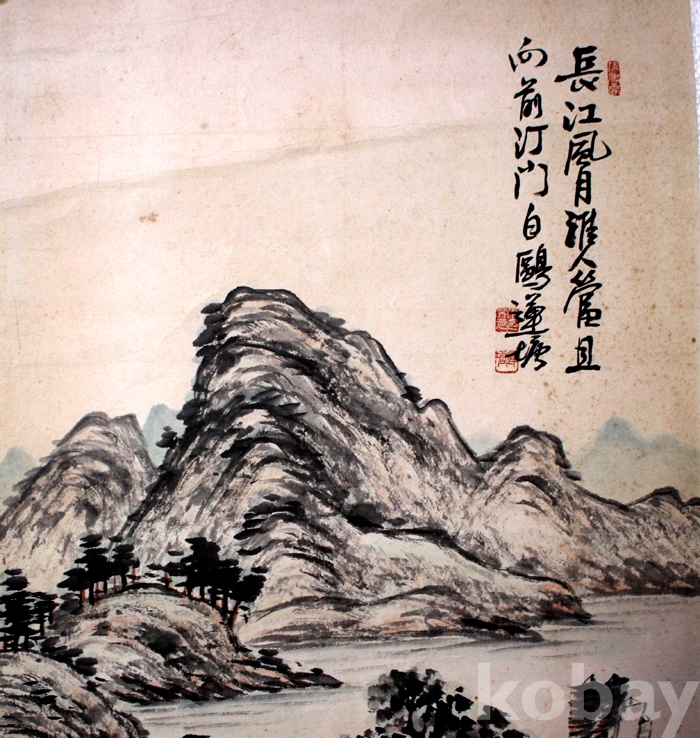 長江風月誰人管且
向前汀問白鷗蓮塘
kobay